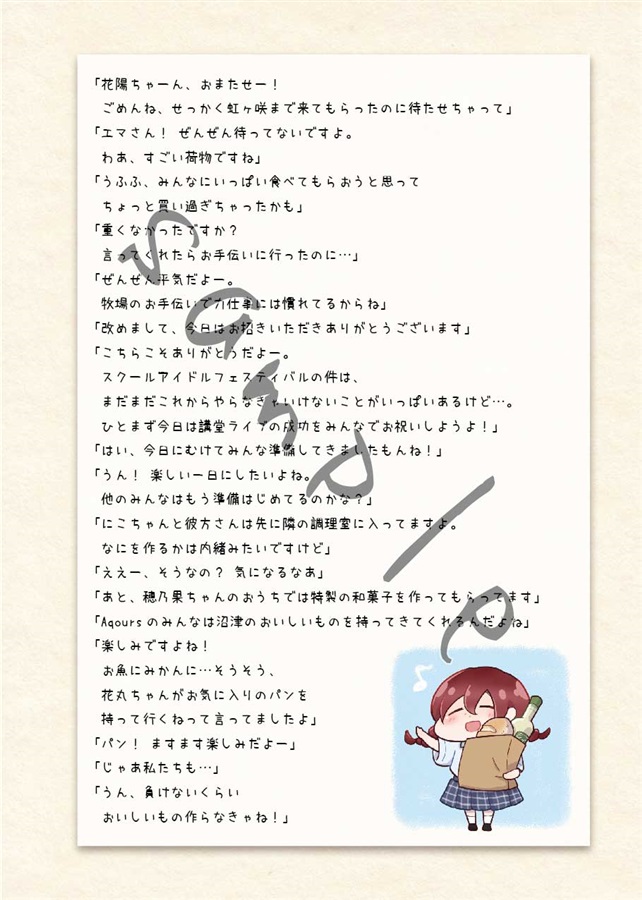 「花陽ちゃーん、おまたせー！
ごめんね、せっかく虹ヶ咲まで来てもらったのに待たせちゃって」
「エマさん！ ぜんぜん待ってないですよ。
わあ、すごい荷物ですね」
「うふふ、みんなにいっぱい食べてもらおうと思って
ちょっと買い過ぎちゃったかも」
「重くなかったですか？
言ってくれたらお手伝いに行ったのに…」
「ぜんぜん平気だよー。
牧場のお手伝いで力仕事には慣れてるからね」
「改めまして、今日はお招きいただきありがとうございます」
「こちらこそありがとうだよー。
スクールアイドルフェスティバルの件は、
まだまだこれからやらなきゃいけないことがいっぱいあるけど…。
ひとまず今日は講堂ライブの成功をみんなでお祝いしようよ！」
「はい、今日にむけてみんな準備してきましたもんね！」
「うん！ 楽しい一日にしたいよね。
他のみんなはもう準備はじめてるのかな？」
「にこちゃんと彼方さんは先に隣の調理室に入ってますよ。
なにを作るかは内緒みたいですけど」
「ええー、そうなの？ 気になるなあ」
「あと、穂乃果ちゃんのおうちでは特製の和菓子を作ってもらってます」
「Aqoursのみんなは沼津のおいしいものを持ってきてくれるんだよね」
「楽しみですよね！
お魚にみかんに…そうそう、
花丸ちゃんがお気に入りのパンを
持って行くねって言ってましたよ」
「パン！ ますます楽しみだよー」
「じゃあ私たちも…」
「うん、負けないくらい
おいしいもの作らなきゃね！」
sample